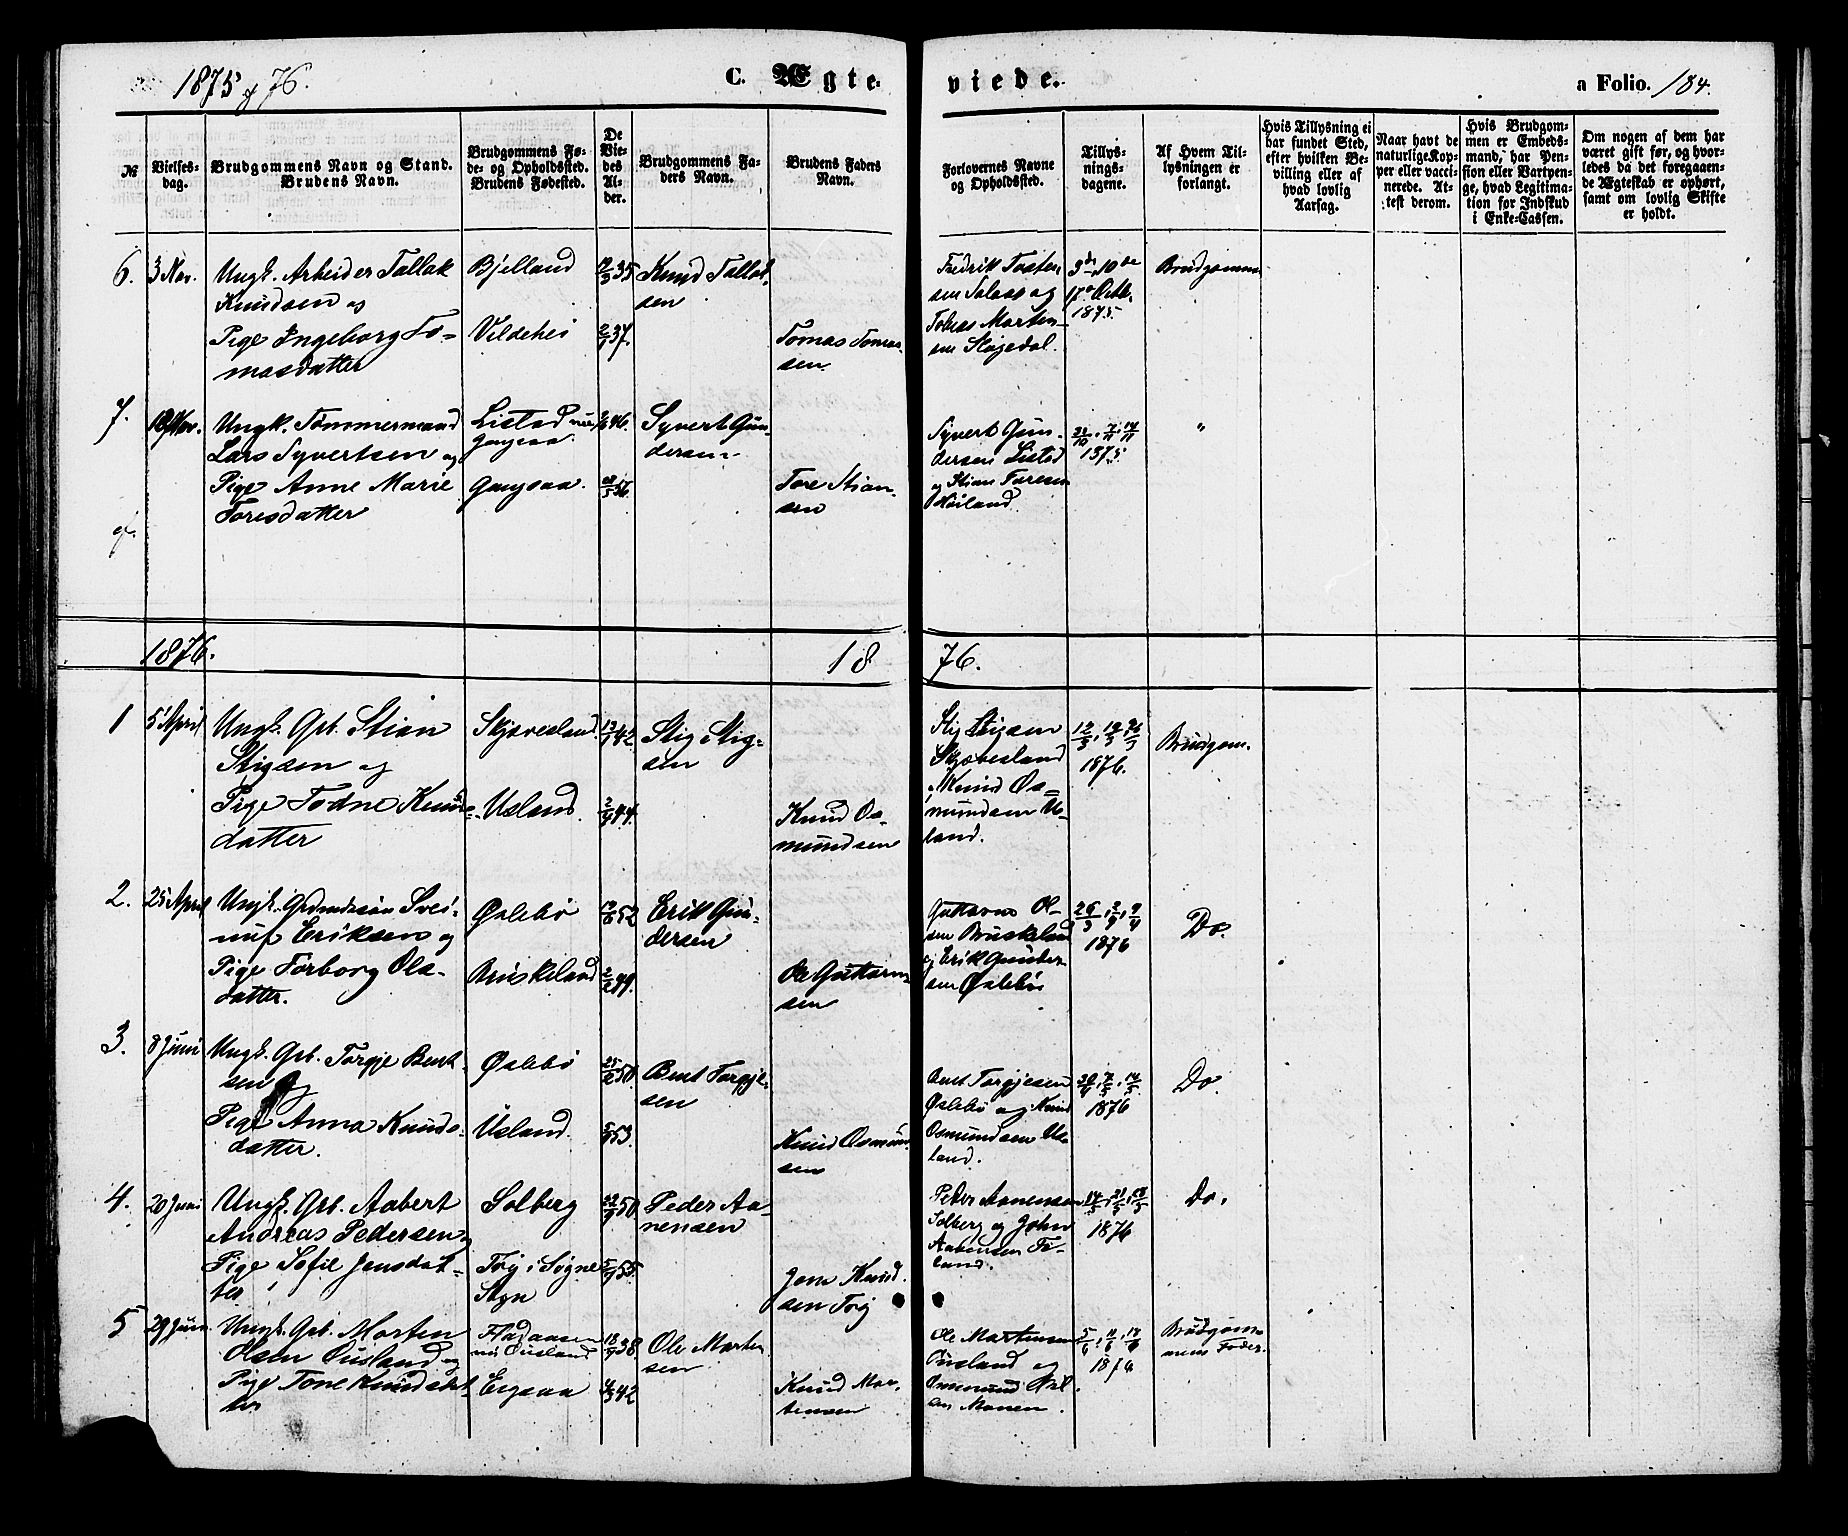 1875 og 76.
C. Ægte-
viede.
a Folio. 184.
№
Vielses-
dag.
Brudgommens Navn og Stand.
Brudens Navn.
Brudgommens Fø-
de- og Opholdssted.
Brudens Fødested.
De
Vie-
des
Al-
der.
Brudgommens Fa-
ders Navn.
Brudens Faders
Navn.
Forlovernes Navne
og Opholdssted.
Tillys-
nings-
dagene.
Af Hvem Til-
lysningen er
forlangt.
Hvis Tillysning ei
har fundet Sted,
efter hvilken Be-
villing eller af
hvad lovlig
Aarsag.
Naar havt de
naturlige Kop-
per eller vacci-
nerede. At-
test derom.
Hvis Brudgom-
men er Embeds-
mand, har Pen-
sion eller Vartpen-
ge, hvad Legitima-
tion for Indskud
i Enke-Cassen.
Om nogen af dem har
været gift før, og hvor-
ledes da det foregaaen-
de Ægteskab er ophørt,
samt om lovlig Skifte
er holdt.
6. 3 Nov. Ungk. Arbeider Tallak
Knudsen og
Pige Ingeborg To-
masdatter
Bjelland
Vildehei
35
2/9 37.
Knud Tallak-
sen
Tomas Tomas-
sen.
Fredrik Tosten-
sen Salaas og
Tobias Morten-
sen Stogedal.
3de, 10de
17de Octb.
1875.
Brudgommen
7. Nov. Ungk. Tømmermand
Lars Syvertsen og
Pige Anne Marie
Toresdatter
Listad nu
Gangsaa
Gangsaa.
46.
56.
Syvert Gun-
dersen
Tore Stian-
sen
Syvert Gun-
dersen Listad
og Stian Toresen
Høiland
31/10, 7/11, 14/11
1875.
"
1876.
18
76.
1 5 April Ungk. Grb. Stian
Stigsen og
Pige Todne Knuds-
datter
Skjævesland.
Usland.
42.
2/9 44.
Stig Stig-
sen
Knud Os-
mundsen
Stig Stigsen
Skjævesland
Knud Os-
mundsen Us-
land.
12/3, 19/3, 26/3
1876.
Brudgom.
2. 25 April Ungk. Grdmandssøn Svei-
nuf Eriksen og
Pige Torborg Ols-
datter.
Øslebø
Bruskeland
52
49.
Erik Gun-
dersen
Ole Guttorm-
sen
Guttorm Ol-
sen Bruskeland
og Erik Gunder-
sen Øslebø
26/3, 2/4, 9/4
1876
Do.
3. 8 Juni Ungk. Grb. Torgje Bent-
sen og
Pige Anna Knuds-
datter.
Øslebø
Usland.
50.
53.
Bent Torgje-
sen
Knud Osmun-
sen
Bent Torgjesen
Øslebø og Knud
Osmundsen Us-
land.
30/4, 7/5, 14/5
1876
Do.
4. 20 Juni Ungk. Grb. Aabert
Andreas Pedersen og
Pige Sofie Jensdat-
ter
Solberg
Trøj i Søgne
Sogn
50.
55.
Peder Aa-
nensen
Jens Knud-
sen Trøj
Peder Aanensen
Solberg og John
land.
14/5, 21/5, 28/5
1876
Do.
5 29 Juni Ungk. Grb. Morten
Olsen Øusland og
Pige Tone Knudsdat-
ter
nu Øusland
Eigsaa
18/9 38.
42
Ole Morten-
sen
Knud Mor-
tensen
Ole Mortensen
Øusland og
Osmund
Monen.
5/6, 11/6, 18/6
1876
Brudgom-
mens Fader.